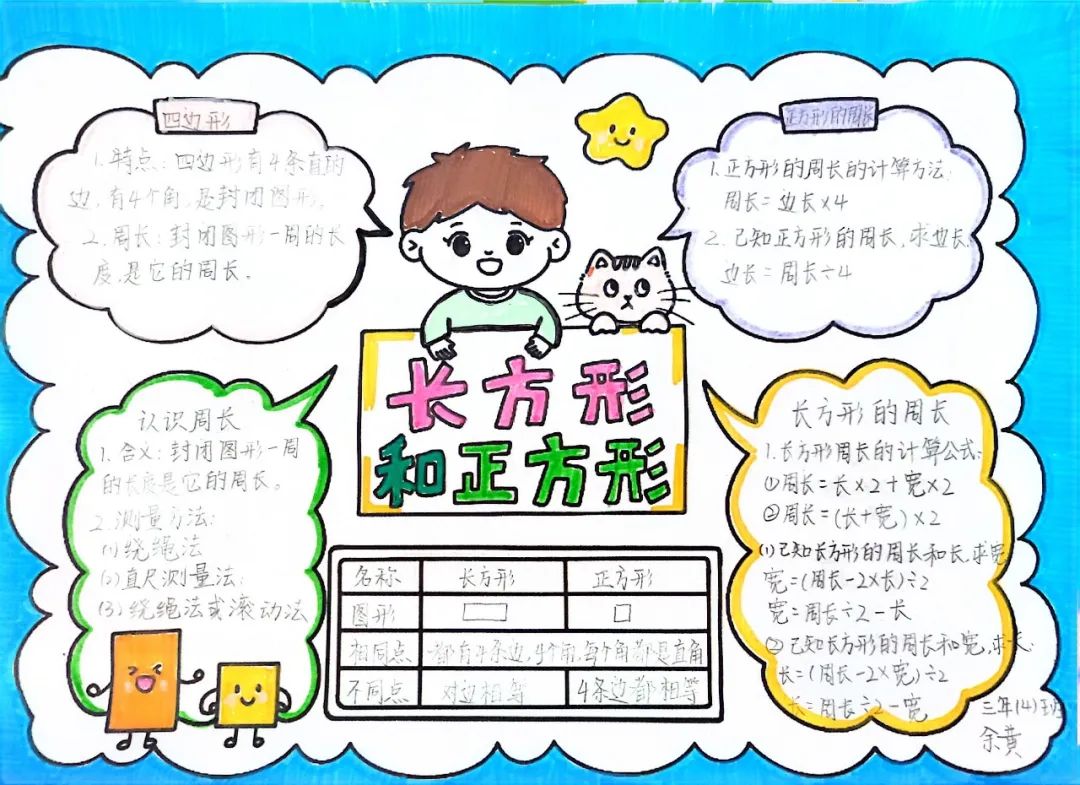 四边形
1.特点:四边形有4条直的
边,有4个角,是封闭图形。
2.周长:封闭图形一周的长
度,是它的周长。
正方形的周长
1.正方形的周长的计算方法:
周长=边长×4
2.已知正方形的周长,求边长:
边长=周长÷4
长方形
和正方形
认识周长
1.含义:封闭图形一周
的长度是它的周长。
2.测量方法:
(1)绕绳法
(2)直尺测量法:
(3)绕绳法或滚动法
名称 长方形 正方形
图形
相同点 都有4条边,4个角,每个角都是直角
不同点 对边相等 4条边都相等
长方形的周长
1.长方形周长的计算公式:
①周长=长×2+宽×2
②周长=(长+宽)×2
(1)已知长方形的周长和长,求宽
宽=(周长-2×长)÷2
宽=周长÷2-长
②已知长方形的周长和宽,求长:
长=(周长-2×宽)÷2
长=周长÷2-宽
三年(4)班
余黄